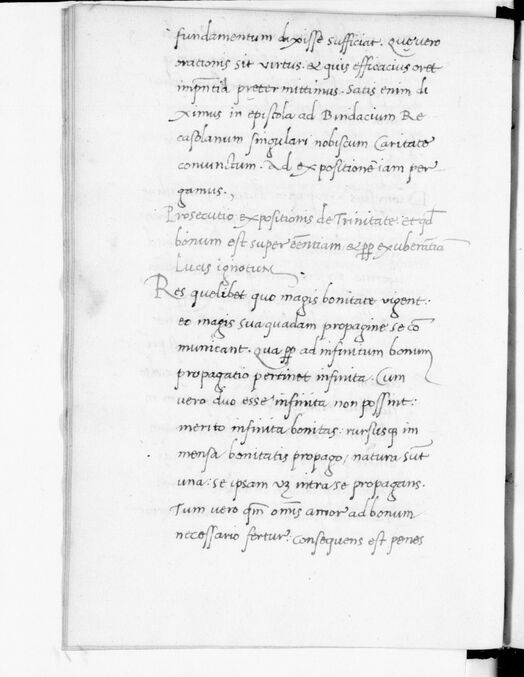 fundamentum dixisse sufficiat. Que vero
orationis sit virtus. & quis efficacius oret
inpntia pretermittimus. Satis enim di
ximus in epistola ad Bindacium Re
casolanum singulari nobiscum Caritate
coniunctum. Ad expositionē iam per
gamus.,
Prosecutio expositionis de Trinitate. et qd
bonum est super eēntiam. & pp exuberātia
Lucis ignotum
Res quelibet quo magis bonitate vigent.
eo magis sua quadam propagine se cō
municant. Qua pp ad infinitum bonum
propagatio pertinet infinita. Cum
vero duo esse infinita non possint:
merito infinita bonitas. rursusq im
mensa bonitatis propago, natura sūt
una. se ipsam vz intra se propagans.
Tum vero qm omīs amor ad bonum
necessario fertur. Consequens est penes